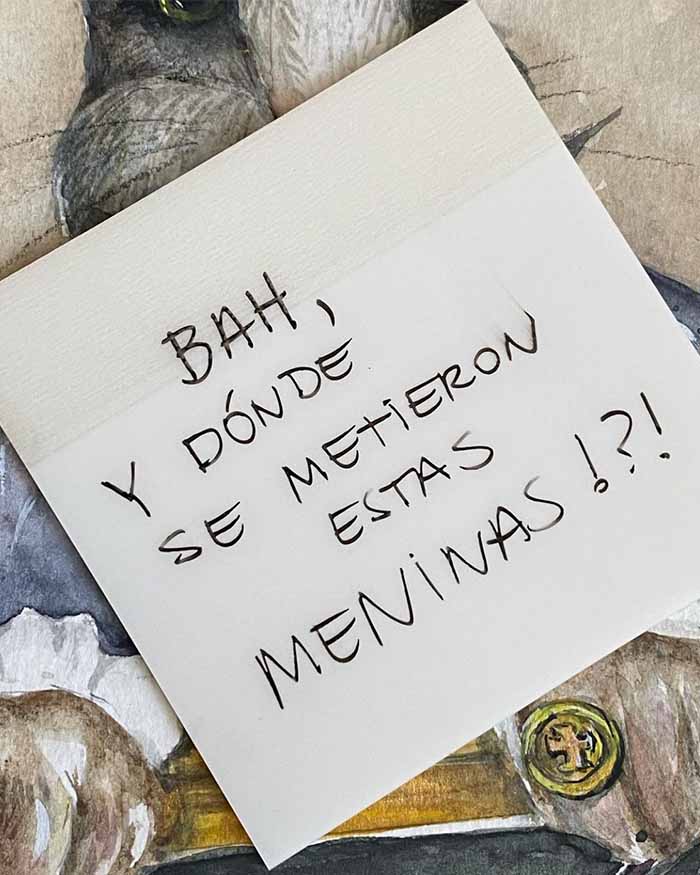 BAH,
Y DÓNDE
SE METIERON
ESTAS
MENINAS!?!